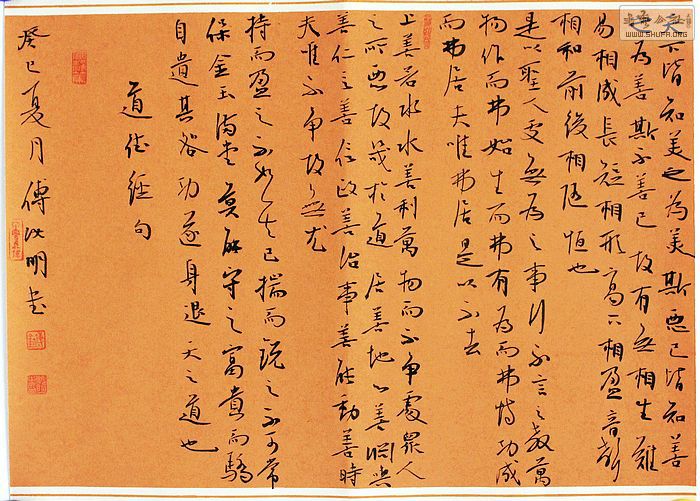 天下皆知美之为美斯恶已皆知善
之为善斯不善已故有無相生難
易相成長短相形高下相盈音聲
相和前後相随恒也
是以聖人處無為之事行不言之教萬
物作而弗始生而弗有為而弗恃功成
而弗居夫唯弗居是以不去
上善若水水善利萬物而不争處眾人
之所惡故幾於道居善地心善淵與
善仁言善信政善治事善能動善時
夫唯不争故無尤
持而盈之不如其已揣而锐之不可常
保金玉满堂莫能守之富貴而驕
自遺其咎功遂身退天之道也
道德經句
癸巳夏月傅明書
WWW.SHUFA.ORG